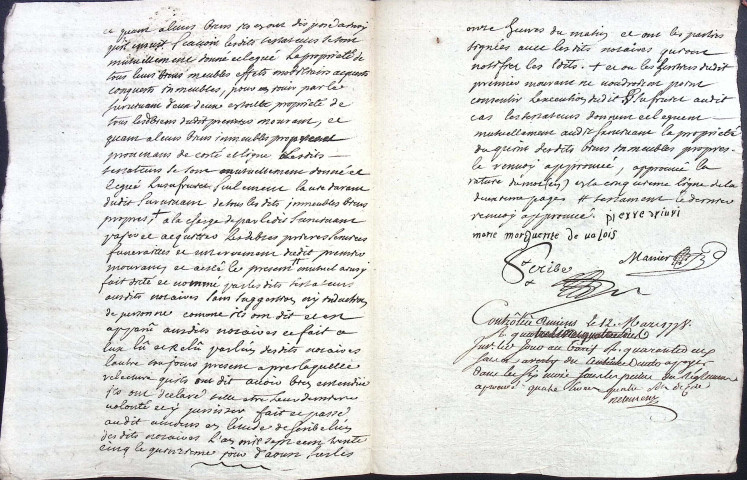 ce quant a leurs biens ils en ont disposé ainsy
qu'il ensuit scavoir lesdits testateurs se sont
mutuellement donné et legué la propriété de
tous leurs biens meubles effets mobiliers acquets
conquets immeubles, pour en jouir par le
survivant d'eux deux en toutte propriété de
tous les biens dudit premier mourant, et
quant a leurs biens immeubles propres
provenans de costé et ligne lesdits
testateurs se sont mutuellement donné et
legué l'usufruit seulement la vie durant
dudit survivant de tous lesdits immeubles biens
propres, + a la charge par ledit survivant
payer et acquitter les debtes prieres services
funerailles et enterrement dudit premier
mourant, et a esté le present # mutuel ainsy
fait dicté et nommé par lesdits testateurs
ausdits notaires sans suggestion ny induction
de personne comme ils ont dit et est
apparu ausdits notaires ce fait a
lux lû et relû par l'un desdits notaires
l'autre toujours present apres laquelle
relecture qu'ils ont dit avoir bien entendue
ils ont declaré telle etre leur derniere
volonté et y persister fait et passé
audit amiens en l'étude de scribe l'un
desdits notaires l'an mil sept cent trente
cinq le quinzieme jour d'aoust sur les
onze heures du matin et ont les parties
signées avec lesdits notaires qui ont
notiffié les . + et ou les heritiers dudit
premier mourant ne voudroient point
consentir l'execution dudit usufruit audit
cas les testateurs donnent et leguent
mutuellement audit survivant la propriété
du quint desdits biens immeubles propres
le renvoy approuvé, approuvé la
rature du mot en la cinquieme ligne de la
deuxieme page # testament ce dernier
renvoy approuvé. pierre
marie margueritte de valois
Scribe
Controllé a amiens le 12 Mars 1778
le
sur les

dans les six mois sous les peines du Reglement
a quatre livres quatre